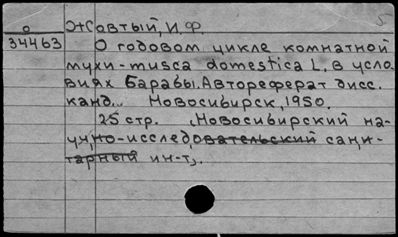 5
о
34463
Жовтый, И.Ф.
О годовом цикле комнатной
мухи-musca domestica L. в усло
виях Барабы. Автореферат дисс.
канд.. Новосибирск, 1950.
25 стр. Новосибирский на-
учно-исследовательский сани-
тарный ин-т.